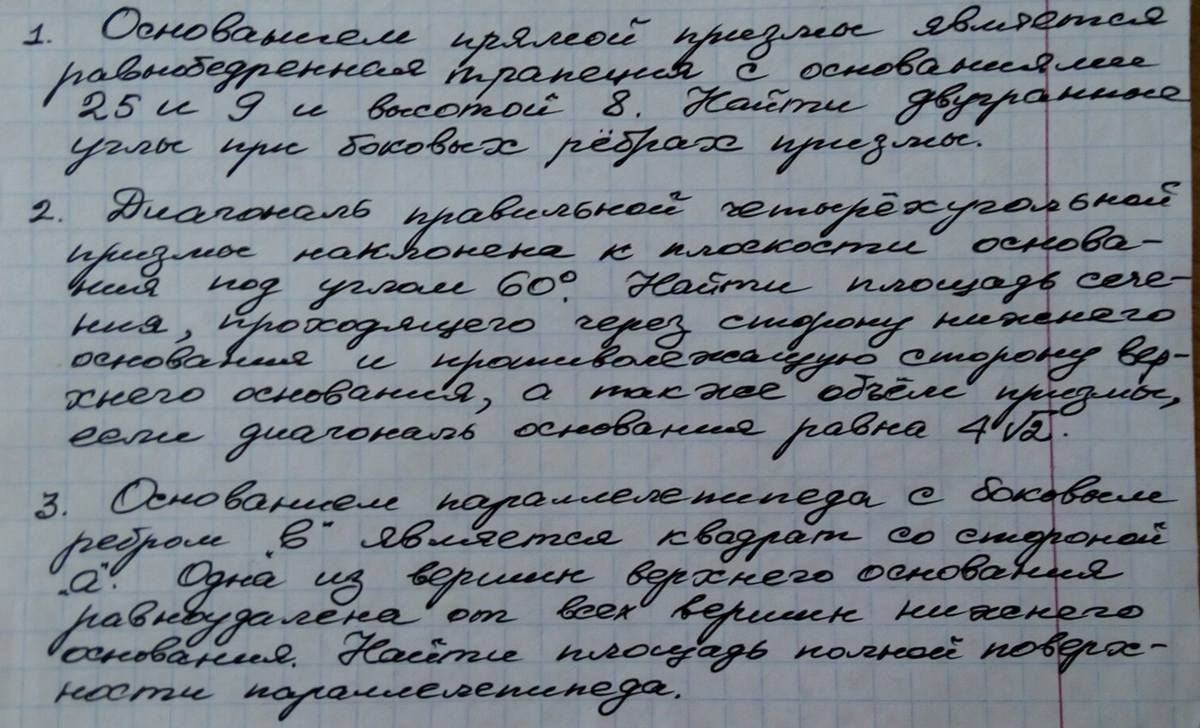 1. Основанием прямой призмы является
равнобедренная трапеция с основаниями
25 и 9 и высотой 8. Найти двугранные
углы при боковых рёбрах призмы.
2. Диагональ правильной четырёхугольной
призмы наклонена к плоскости основа-
ния под углом 60°. Найти площадь сече-
ния, проходящего через сторону нижнего
основания и противолежащую сторону вер-
хнего основания, а также объём призмы,
если диагональ основания равна 4√2.
3. Основанием параллелепипеда с боковым
ребром „b" является квадрат со стороной
„a". Одна из вершин верхнего основания
равноудалена от всех вершин нижнего
основания. Найти площадь полной поверх-
ности параллелепипеда.